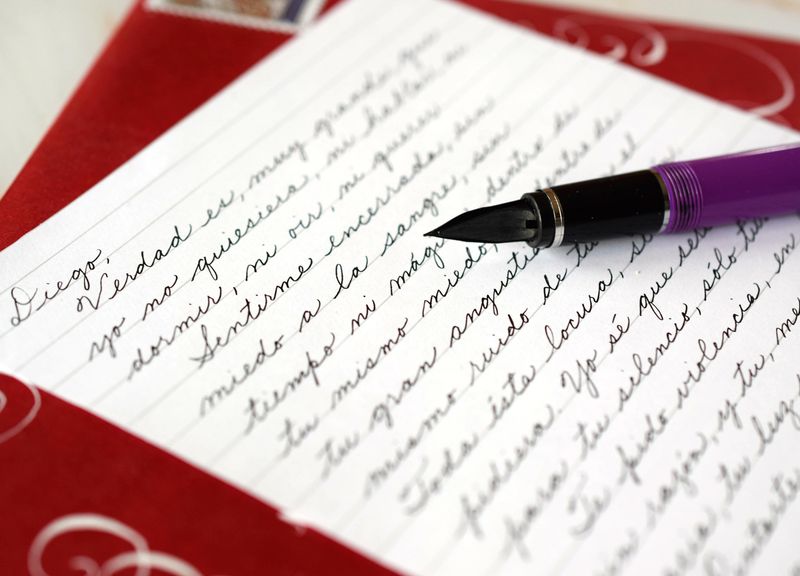 Diego,
Verdad es, muy grande, que
yo no quiesiera, ni hablar, ni
dormir, ni oir, ni querer
Sentirme encerrada, sin
miedo a la sangre, sin
tiempo ni mági dentro de
tu mismo miedo, dentro de
tu gran angustia el
mismo ruido de tu
Toda ésta locura,
pidiera. Yo sé que
para tu silencio, sólo
Te pido violencia, en
razón, y tu, me
tu luz